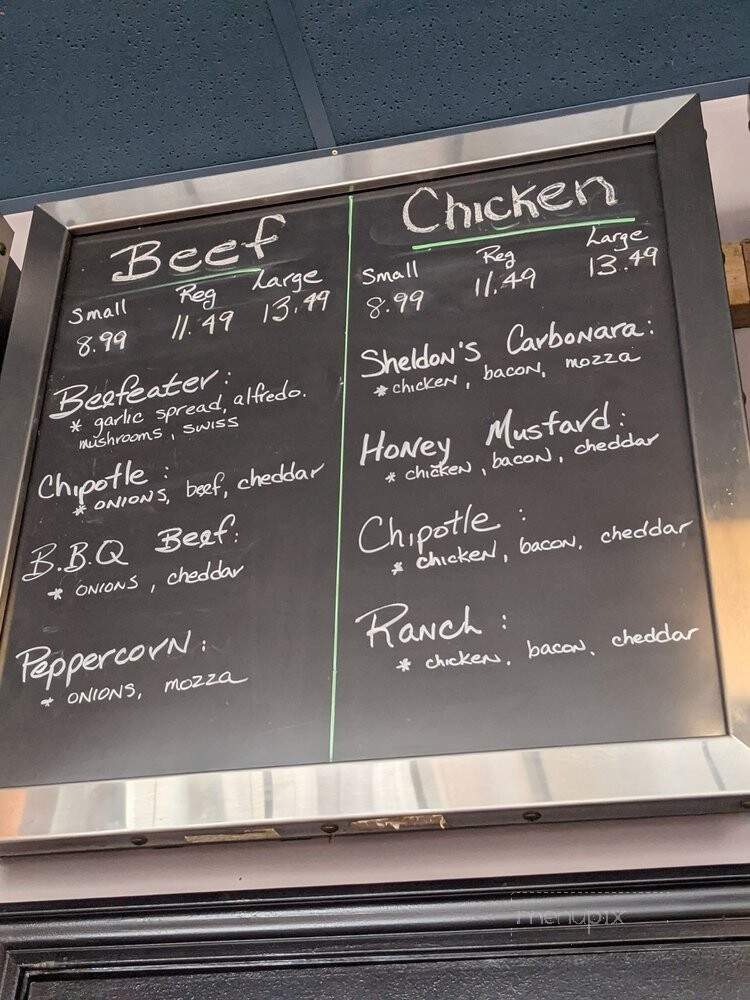 Beef
Small Reg Large
8.99 11.49 13.49
Beefeater:
* garlic spread, alfredo.
mushrooms, swiss
Chipotle:
* onions, beef, cheddar
B.B.Q Beef:
* onions, cheddar
Peppercorn:
* onions, mozza
Chicken
Small Reg Large
8.99 11.49 13.49
Sheldon's Carbonara:
* chicken, bacon, mozza
Honey Mustard:
* chicken, bacon, cheddar
Chipotle:
* chicken, bacon, cheddar
Ranch:
* chicken, bacon, cheddar
menupix